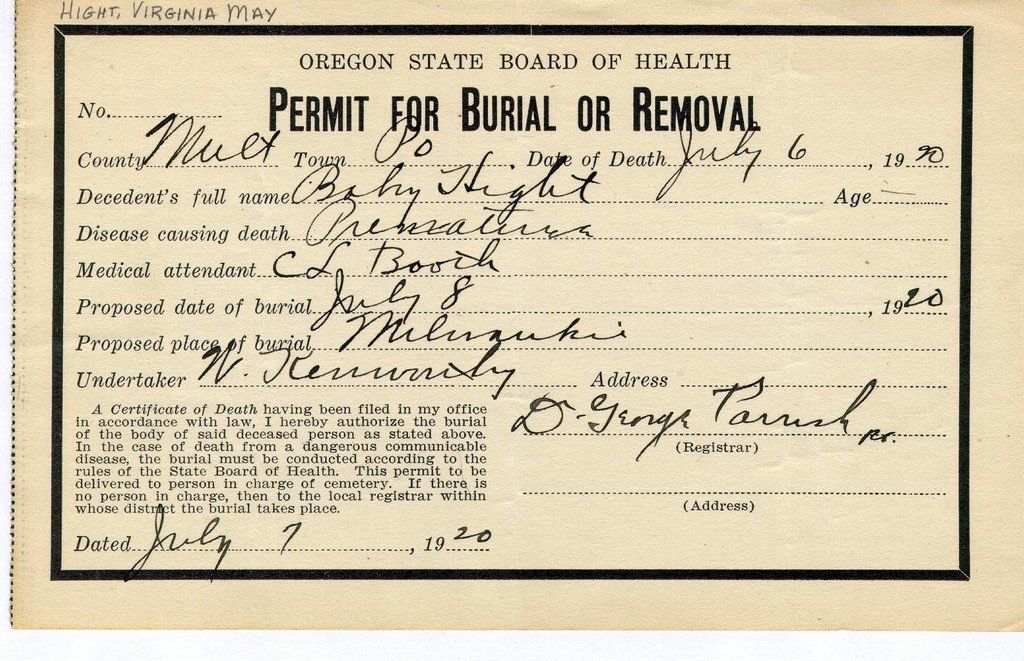 HIGHT, VIRGINIA MAY
OREGON STATE BOARD OF HEALTH
No.
PERMIT FOR BURIAL OR REMOVAL
County Mult Town Po Date of Death July 6, 1920
Decedent's full name Baby Hight Age —
Disease causing death Premature
Medical attendant C L Booth
Proposed date of burial July 8, 1920
Proposed place of burial Milwaukie
Undertaker W. Kenworthy Address
A Certificate of Death having been filed in my office
in accordance with law, I hereby authorize the burial
of the body of said deceased person as stated above.
In the case of death from a dangerous communicable
disease, the burial must be conducted according to the
rules of the State Board of Health. This permit to be
delivered to person in charge of cemetery. If there is
no person in charge, then to the local registrar within
whose district the burial takes place.
Dated July 7, 1920
Dr George Parrish
(Registrar)
(Address)